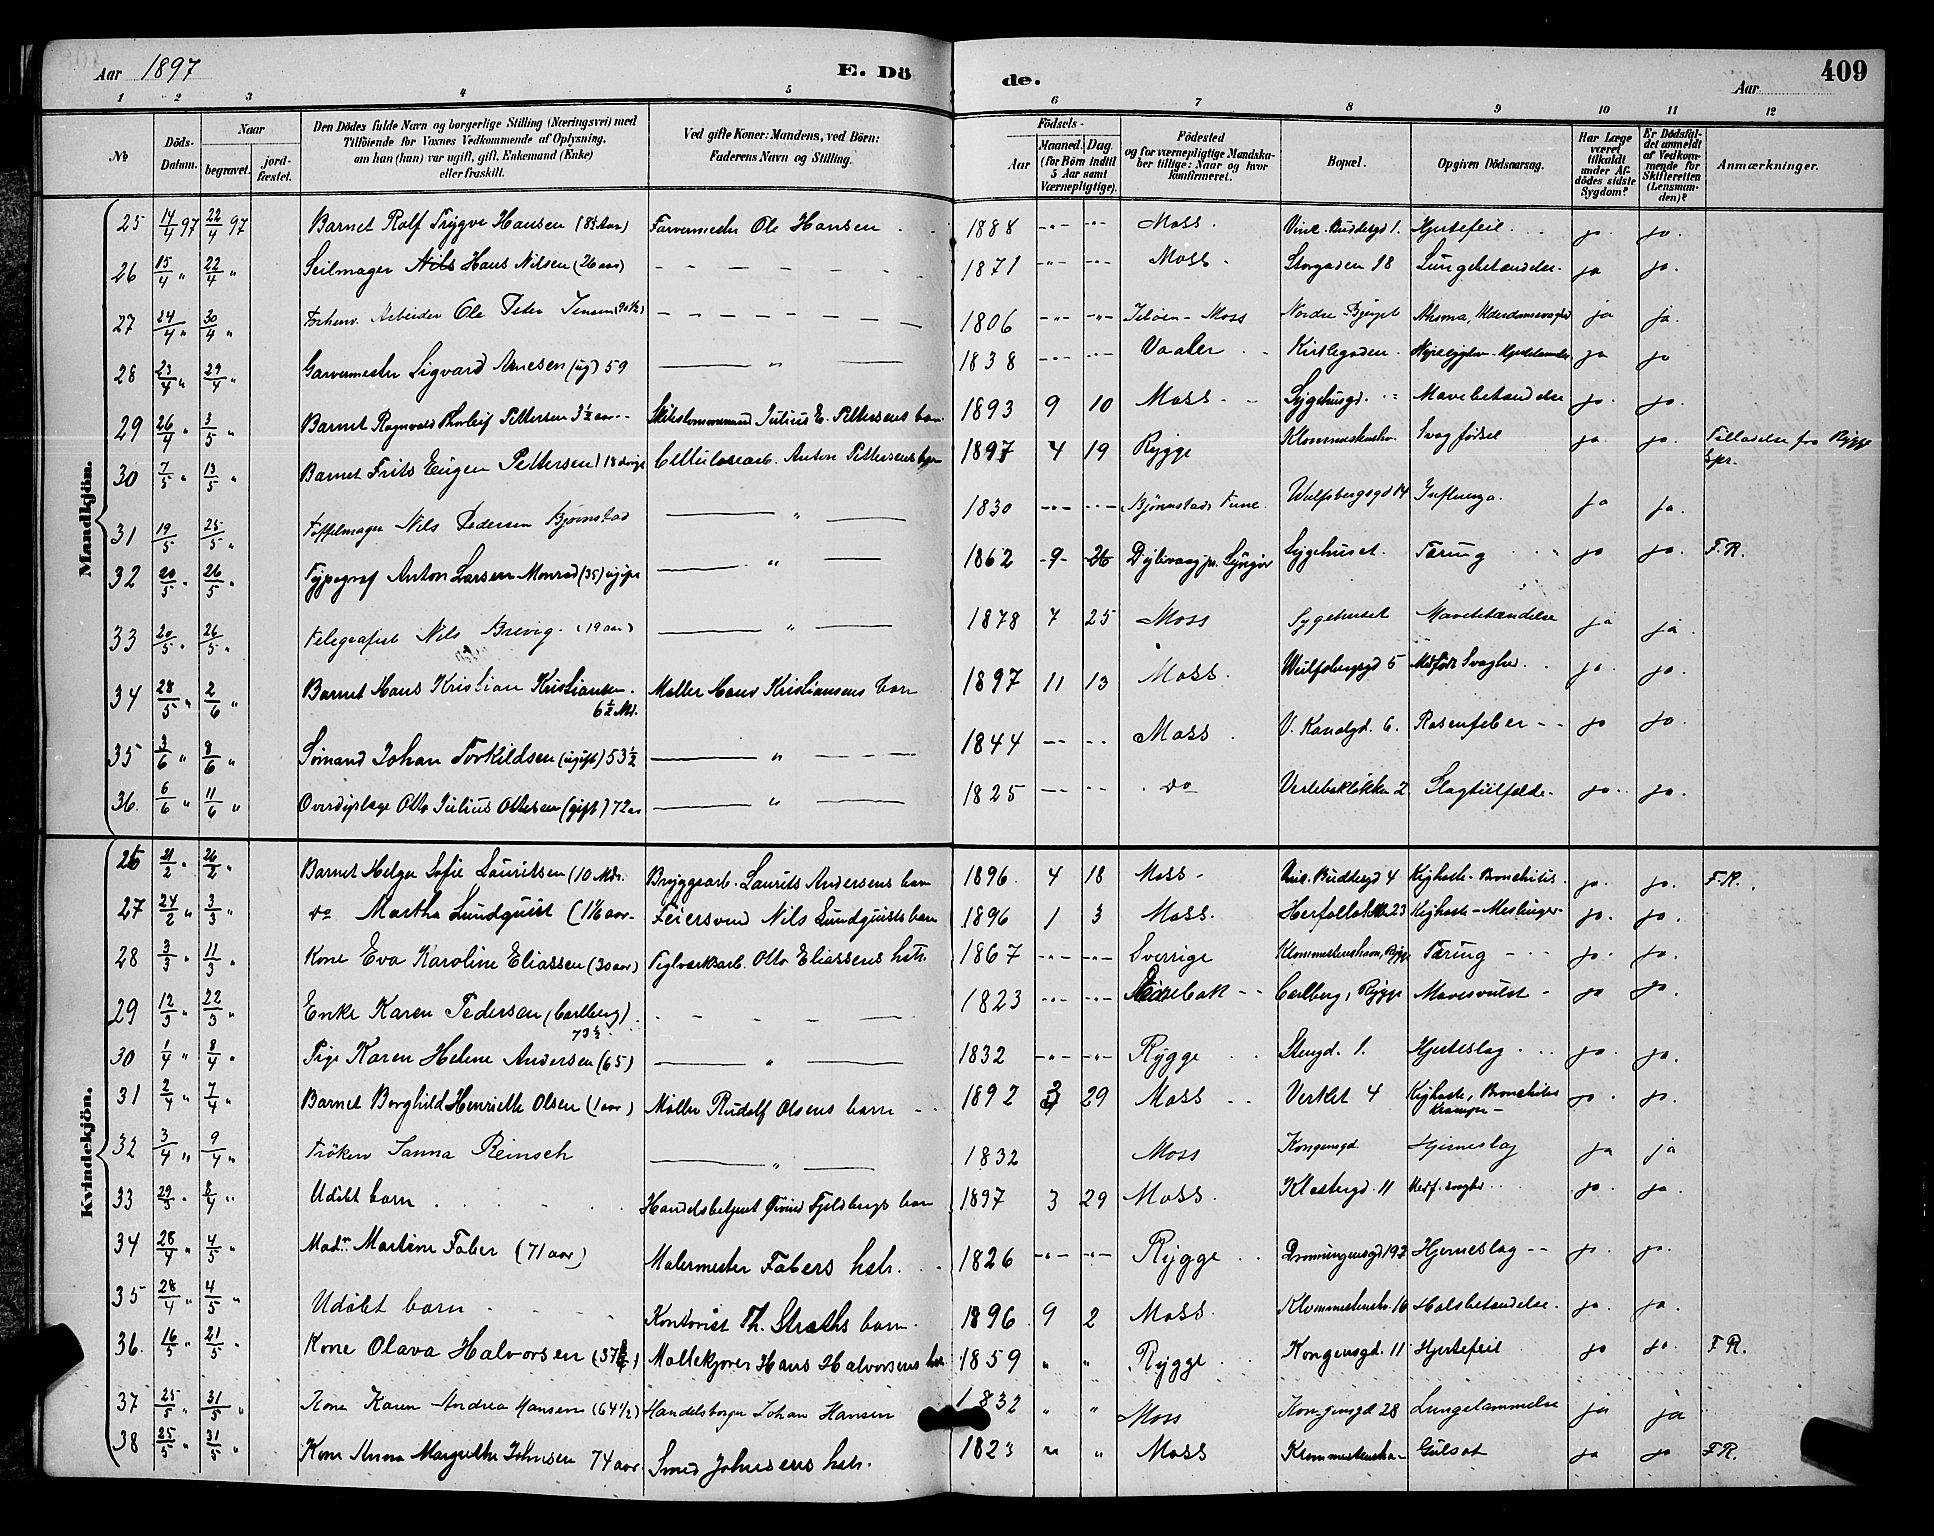 Aar 1897 E. Dö de. Aar 409
1 2 3 4 5 6 7 8 9 10 11 12
No Döds-Datum. Naar begravet. jord-fæstet. Den Dödes fulde Navn og borgerlige Stilling (Næringsvei) med Tilföiende for Voxnes Vedkommende af Oplysning, om han (hun) var ugift, gift, Enkemand (Enke) eller fraskilt. Ved gifte Koner: Mandens, ved Börn: Faderens Navn og Stilling. Födsels- Aar Maaned. Dag. (for Börn indtil 5 Aar samt Værnepligtige). Födested og for værnepligtige Mandska-ber tillige: Naar og hvor konfirmeret. Bopæl. Opgiven Dödsaarsag. Har Læge været tilkaldt under Af-dödes sidste Sygdom? Er Dödsfal-det anmeldt af Vedkom-mende for Skifteretten (Lensman-den)? Anmærkninger.
Mandkjön.
25 14/4 97 22/4 97 Barnet Rolf Trygve Hansen (8½ Aar) Farvermester Ole Hansen 1888 -"- -"- Moss. Vinc. Buddesgd 1. Hjertefeil. ja. ja.
26 15/4 " 22/4 " Seilmager Nils Hans Nilsen (26 aar) 1871 -"- -"- Moss. Storgaden 18 Lungebetændelse. ja ja.
27 24/4 " 30/4 " Forhenv. Arbeider Ole Peder Jensen (90½) 1806 -"- -"- Jelöen - Moss Nordre Bjerget Alderdomssvaghed ja ja.
28 23/4 " 29/4 " Garvermester Sigvard Arnesen (ug) 59 " 1838 -"- -"- Vaaler Kirkegaden. ja ja
29 26/4 " 3/5 " Barnet Ragnvald Thorleif Pettersen 3½ aar Julius E. Pettersens barn 1893 9 10 Moss Sygehusgd. Mavebetændelse ja. ja.
30 7/5 " 13/5 " Barnet Frits Eugen Pettersen (18 dage Cellulosearb. Anton Pettersens barn 1897 4 19 Rygge Svag födsel ja ja. Tilladelse fra Rygge Spr.
31 19/5 25/5 " Töffelmager Nils Pedersen Bjørnstad " 1830 -"- -"- Bjørnstad, Tune. Wulfsbergsgd 14 Influenza. ja ja.
32 20/5 " 26/5 " Typograf Anton Larsen Monrad (35) ugift " 1862 9 26 Sygehuset. Tæring ja ja. F.R.
33 20/5 " 26/5 " Telegrafist Nils Brevig. (19 aar) " 1878 4 25 Moss Sygehuset Mavebetændelse ja ja.
34 28/5 " 2/6 " Barnet Hans Kristian Kristiansen. 6½ Md. Møller Hans Kristiansens barn 1897 11 13 Moss. Wulfsbergsgd 5 Medfödt Svaghed. ja. ja.
35 3/6 " 8/6 " Sömand Johan Torkildsen (ugift) 53½ " 1844 Moss. V. Kanalgd. 6. Rosenfeber ja ja.
36. 6/6 " 11/6 " Otto Julius Ottesen (gift) 72 aar " 1825 do Verlebakløkken 2 Slagtilfælde. ja. ja.
Kvindekjön.
26 21/2 " 26/2 " Barnet Helga Sofie Lauritsen (10 Mdr. Bryggearb. Laurits Andersens barn 1896. 4 18 Moss Vinc. Buddesgd 4 Kighoste - Bronchitis. ja. ja. F.R.
27 24/2 " 3/3 " do Martha Lundquist (1 1/6 aar Feiersvend Nils Lundquists barn 1896 1 3 Moss. 23 Kighoste - Meslinger ja. ja.
28 3/3 " 11/3 " Kone Eva Karoline Eliassen (30 aar) Teglværksarb. Otto Eliassens hstr. 1867 -"- -"- Sverrige Klommestenshavn, Rygge Tæring ja. ja.
29 12/3 " 22/3 " Enke Karen Pedersen (Carlberg). 73½ 1823 -"- -"- Carlberg, Rygge Mavesvulst ja ja.
30 1/4 " 8/4 " Pige Karen Helene Andersen (65) " 1832 -"- -"- Rygge Stengd. 1. Hjerteslag ja. ja.
31 2/4 " 7/4 " Barnet Borghild Henriette Olsen (1 aar) Møller Rudolf Olsens barn 1892 3 29 Moss Verket 4 Kighoste, Bronchitis Krampe ja. ja.
32 3/4 " 9/4 " Fröken Janna Reinsch " 1832 Moss Kongensgd Hjerneslag ja ja
33 29/3 " 8/4 " Udöbt barn Handelsbetjent Öivind Fjeldbergs barn 1897 3 29 Moss. Klostergd. 11 Medf. svaghed ja. ja.
34 28/4 " 4/5 " Mad.m Martine Faber (71 aar) Malermester Fabers hstr. 1826 -"- -"- Rygge Dronningensgd 19 Hjerneslag ja. ja.
35 28/4 " 4/5 " Udöbt barn Kontorist Th. Straths barn. 1896. 9 2 Moss. 16 Halsbetændelse. ja. ja.
36. 16/5 21/5 " Kone Olava Halvorsen (37 ) Møllekjører Hans Halvorsens hstr. 1859 " " Rygge Kongensgd. 11 Hjertefeil ja ja. F.R.
37 25/5 " 31/5 " Kone Karen Andrea Hansen (64½) Handelsborger Johan Hansen 1832 " " Moss Kongensgd 28 Lungelammelse ja ja
38 25/5 " 31/5 " Kone Anna Margrethe Johnsen 74 aar. Smed Johnsens hstr. 1823 " " Moss Gulsot ja ja F.R.